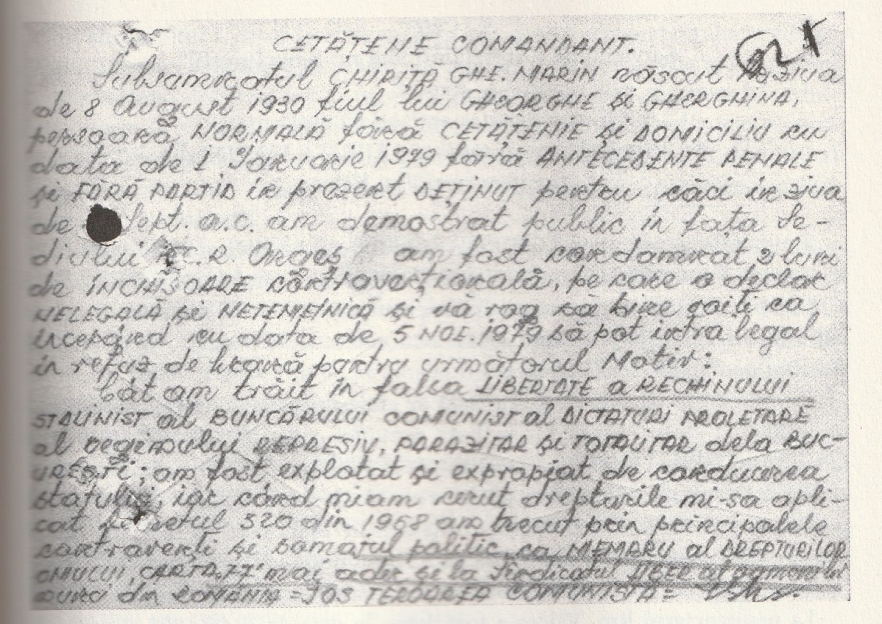 CETĂȚENE COMANDANT.
Subsemnatul CHIRIȚĂ GHE. MARIN născut în ziua
de 8 August 1930 fiul lui GHEORGHE și GHERGHINA,
persoană NORMALĂ fără CETĂȚENIE și DOMICILIU cu
data de 1 Ianuarie 1979 fără ANTECEDENTE PENALE
și FĂRĂ PARTID în prezent DEȚINUT pentru căci in ziua
de Sept. a.c. am demostrat public in fața Se-
diului C.R. Argeș am fost condamnat 2 luni
de ÎNCHISOARE contravențională, pe care o declar
NELEGALĂ și NETEMEINICĂ și vă rog să bine voiți ca
incepând cu data de 5 NOE. 1979 să pot intra legal
in refuz de hrană pentru următorul Motiv:
Cât am trăit in falca LIBERTATE a RECHINULUI
STALINIST al BUNCĂRULUI COMUNIST al DICTATURI PROLETARE
al regimului REPRESIV, PARAZITAR și TOTALITAR dela BUC-
UREȘTI; am fost explotat și expropiat de conducerea
statului, iar când miam cerut drepturile mi-sa apli-
cat Decretul 320 din 1968 am trecut prin principalele
contravenți și șomajul politic, ca MEMBRU al DREPTURILOR
OMULUI, CARTA 77 mai ader și la Sindicatul LIBER al
din ROMÂNIA = JOS TEROAREA COMUNISTĂ =